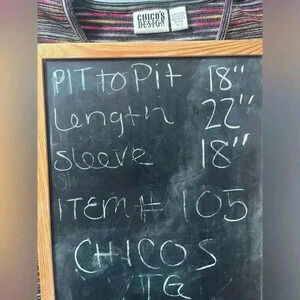 CHICO'S
DESIGN
PIT to Pit 18"
Length 22"
Sleeve 18"
ITEM # 105
CHICOS
VTG